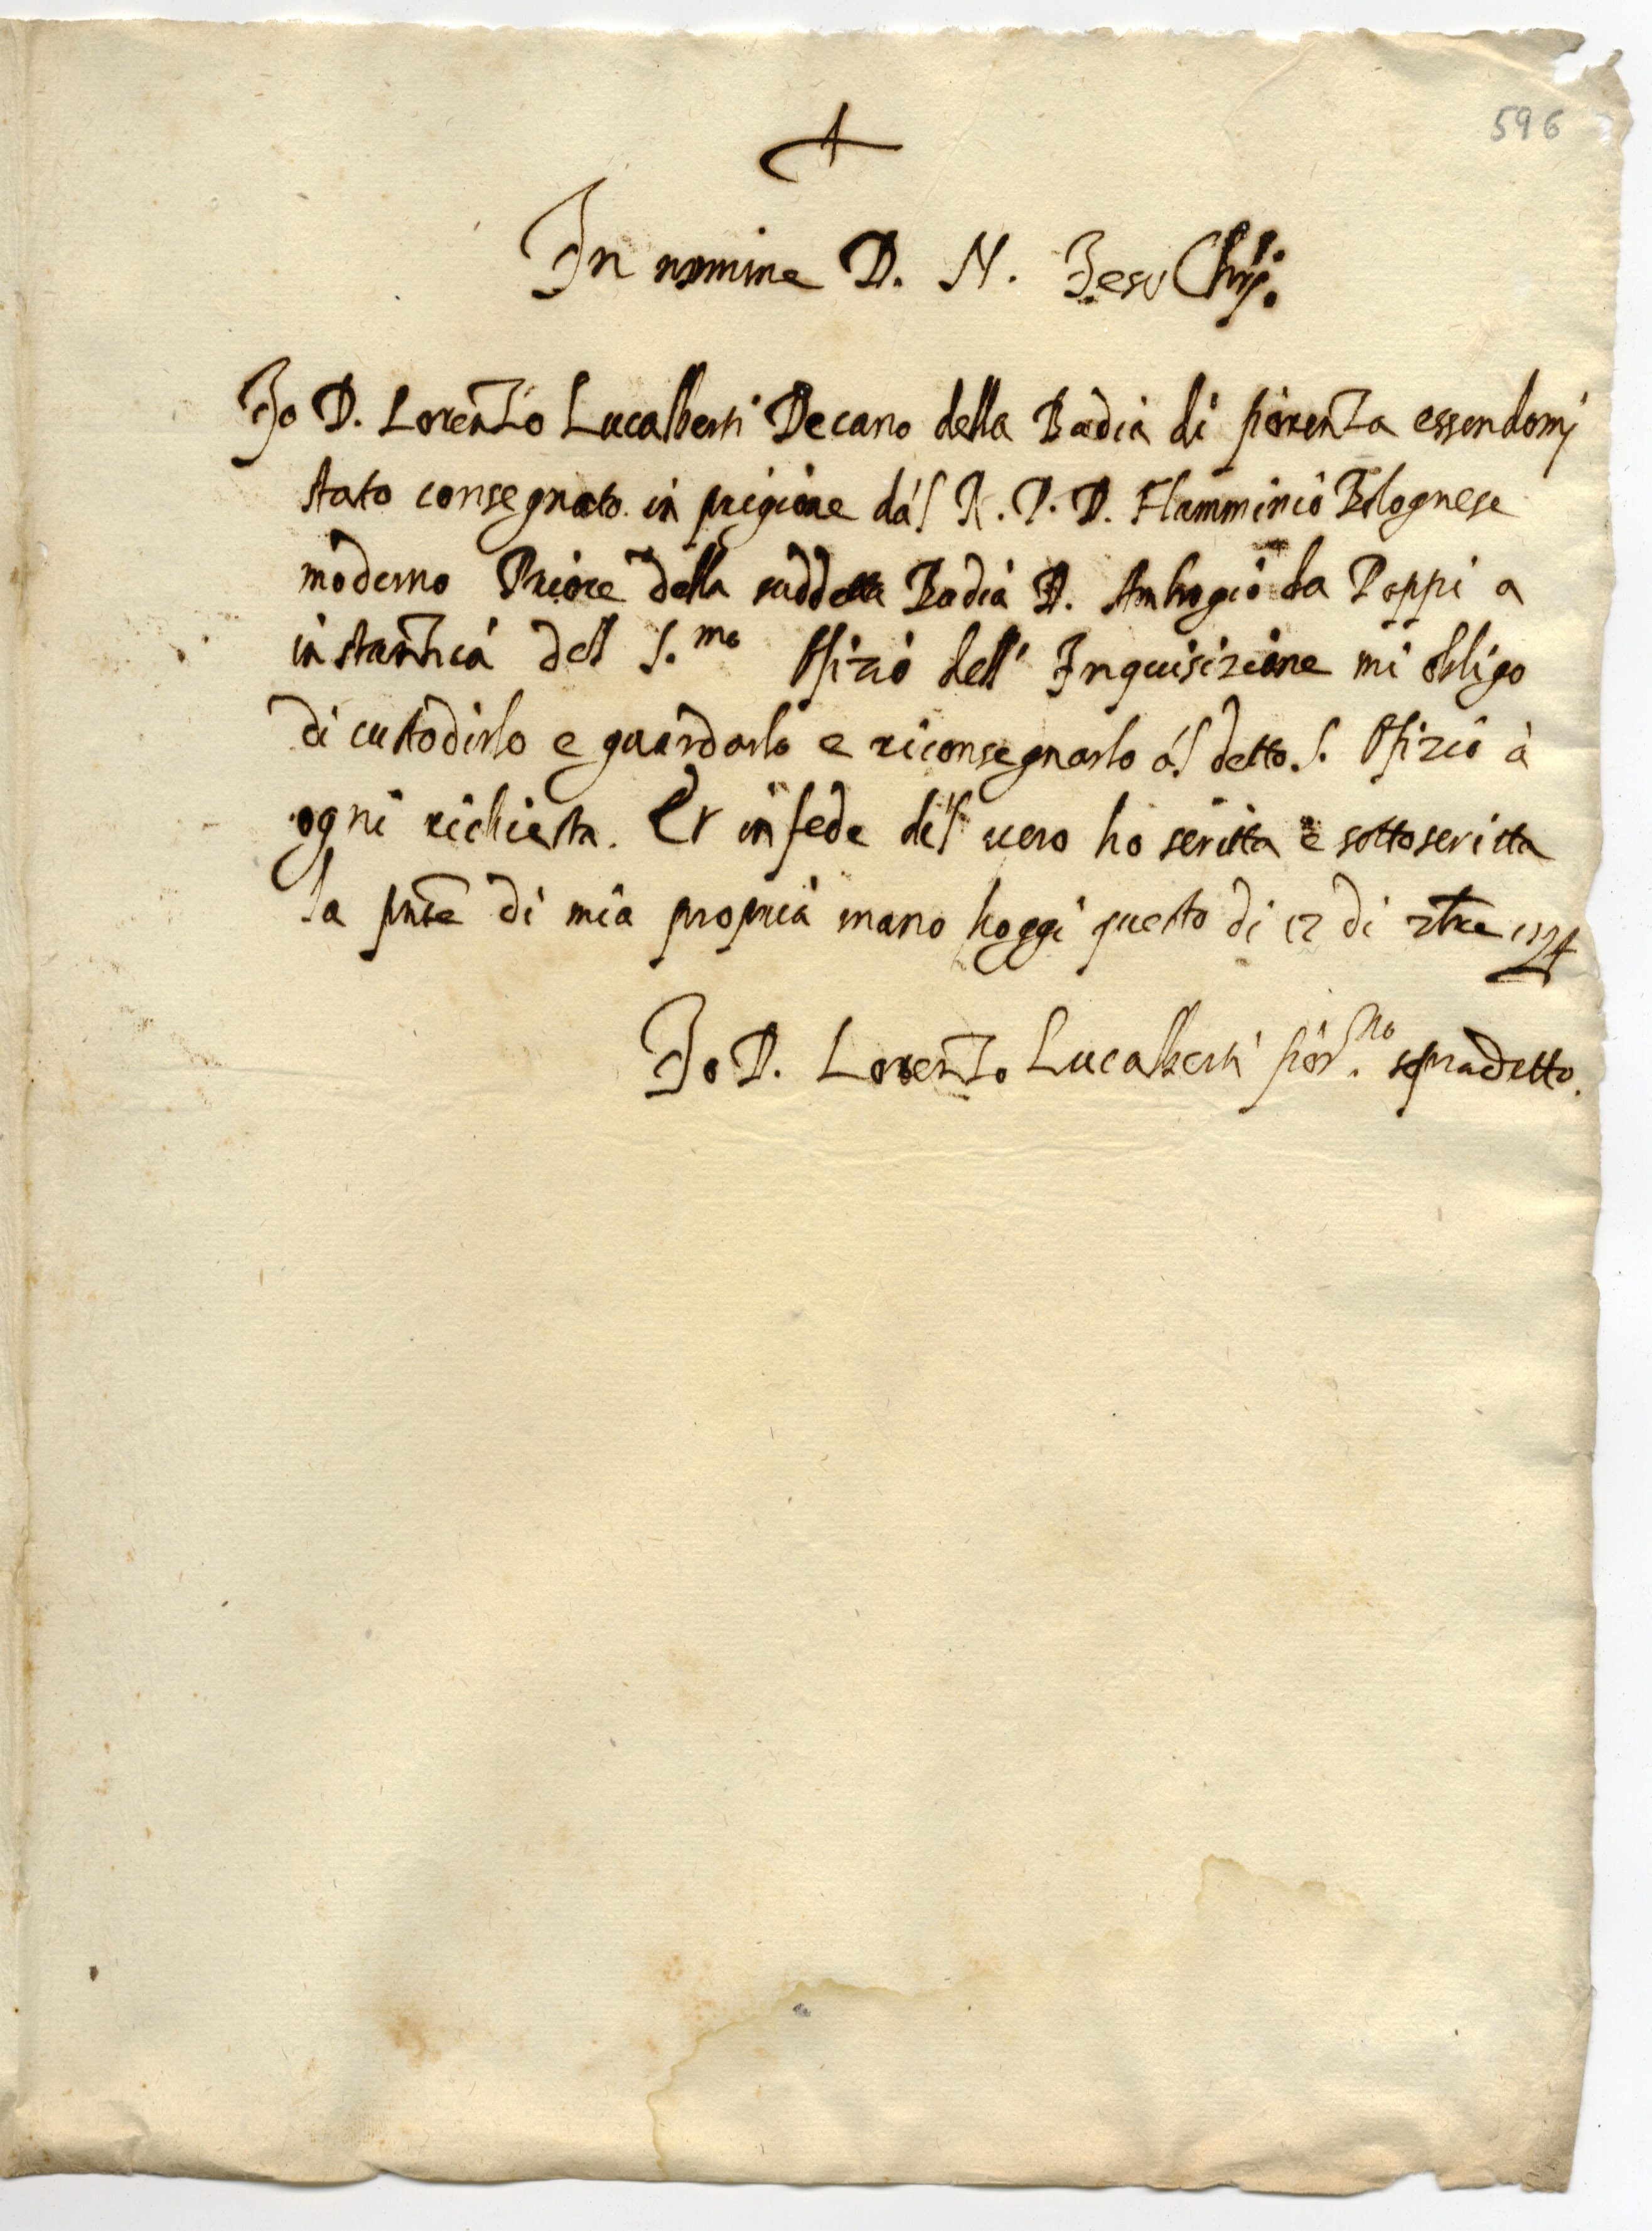 596
In nomine D. N. Jesu Chri.
Io D. Lorenzo Lucalberti Decano della Badia di fiorenza essendomi
stato consegnato in prigione dal R. P. D. Flamminio Bolognese
moderno Priore della suddetta Badia D. Ambrogio da Poppi a
instantia del S.mo Ofizio dell' Inquisizione mi obligo
di custodirlo e guardarlo e riconsegnarlo al detto S. Ofizio à
ogni richiesta. Et in fede del uero ho scritta e sottoscritta
la pnte di mia propria mano hoggi questo di 12 di
Io D. Lorenzo Lucalberti fior.no sopradetto.